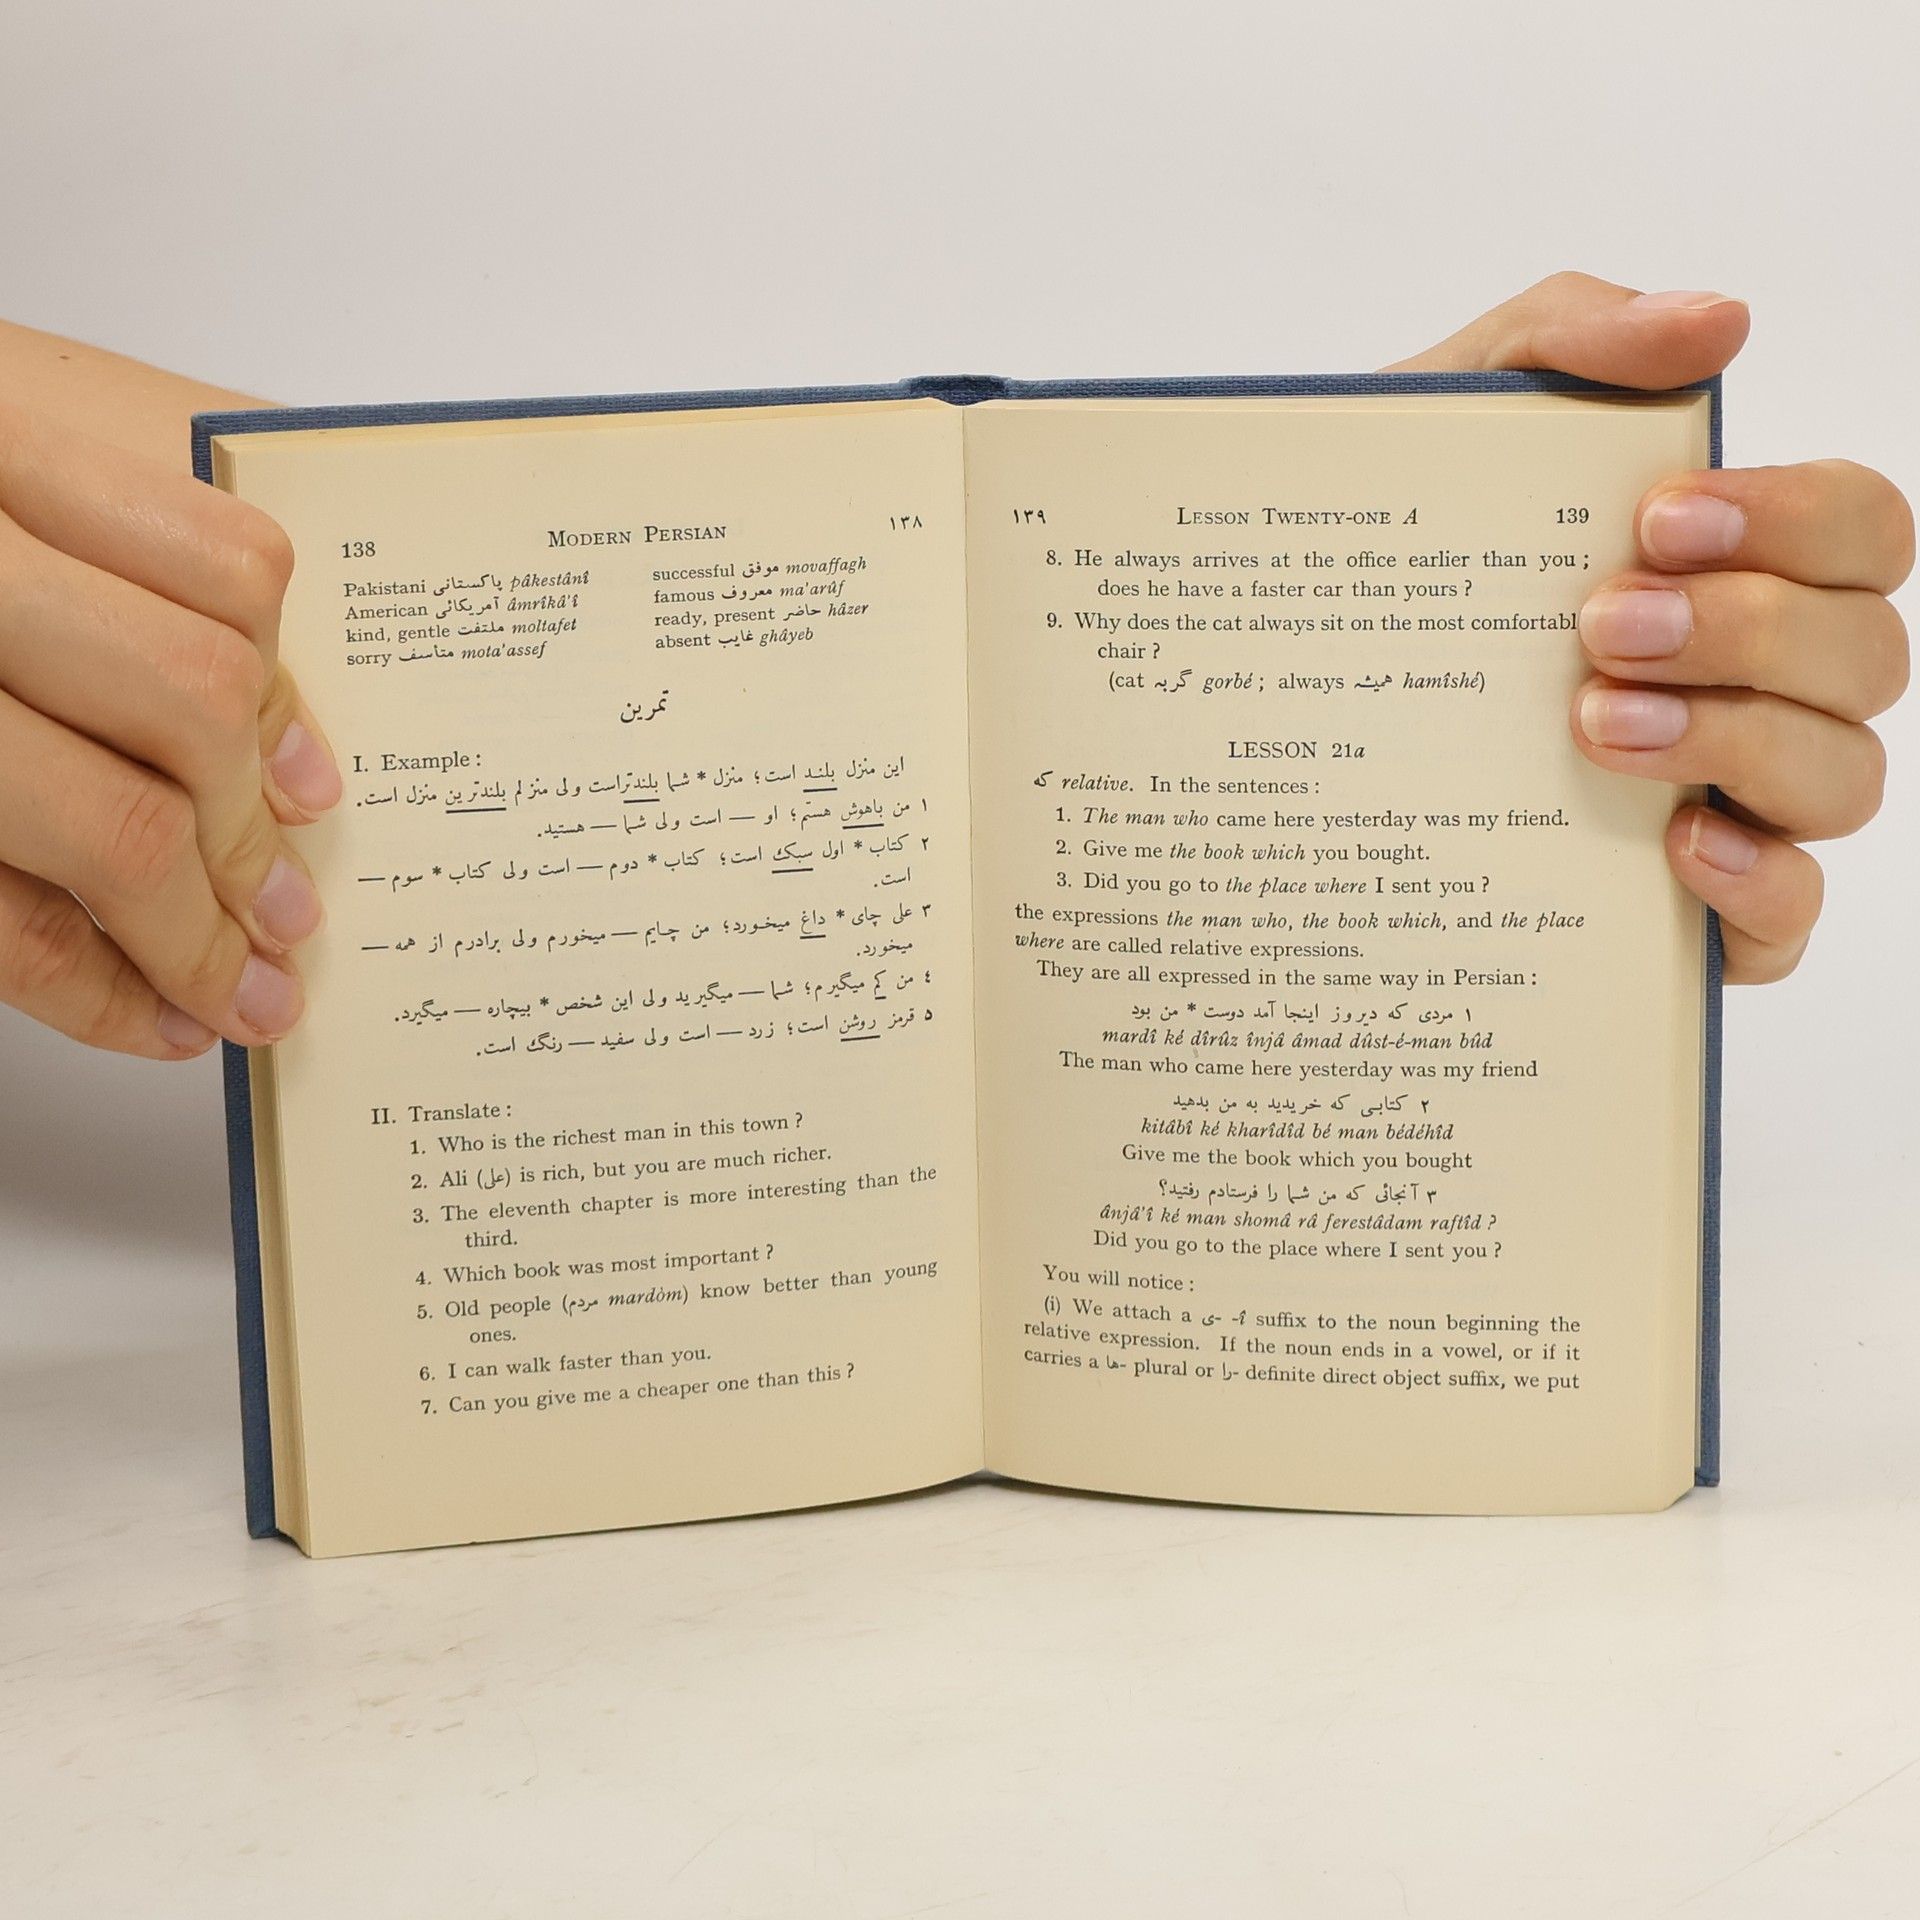 138 MODERN PERSIAN ١٣٨
Pakistani پاکستانی pâkestânî
American آمریکائی âmrîkâ'î
kind, gentle ملتفت moltafet
sorry متأسف mota'assef
successful موفق movaffagh
famous معروف ma'arûf
ready, present حاضر hâzer
absent غایب ghâyeb
تمرین
I. Example :
این منزل بلند است؛ منزل * شما بلندتراست ولی منزلم بلندترین منزل است.
١ من باهوش هستم؛ او — است ولی شما — هستید.
٢ کتاب * اول سبک است؛ کتاب * دوم — است ولی کتاب * سوم —
است.
٣ علی چای * داغ میخورد؛ من چایم — میخورم ولی برادرم از همه —
میخورد.
٤ من کم میگیرم؛ شما — میگیرید ولی این شخص * بیچاره — میگیرد.
٥ قرمز روشن است؛ زرد — است ولی سفید — رنگ است.
II. Translate :
1. Who is the richest man in this town ?
2. Ali (علی) is rich, but you are much richer.
3. The eleventh chapter is more interesting than the
third.
4. Which book was most important ?
5. Old people (مردم mardòm) know better than young
ones.
6. I can walk faster than you.
7. Can you give me a cheaper one than this ?
١٣٩ LESSON TWENTY-ONE A 139
8. He always arrives at the office earlier than you ;
does he have a faster car than yours ?
9. Why does the cat always sit on the most comfortabl
chair ?
(cat گربه gorbé ; always همیشه hamîshé)
LESSON 21a
که relative. In the sentences :
1. The man who came here yesterday was my friend.
2. Give me the book which you bought.
3. Did you go to the place where I sent you ?
the expressions the man who, the book which, and the place
where are called relative expressions.
They are all expressed in the same way in Persian :
١ مردی که دیروز اینجا آمد دوست * من بود
mardî ké dîrûz înjâ âmad dûst-é-man bûd
The man who came here yesterday was my friend
٢ کتابی که خریدید به من بدهید
kitâbî ké kharîdîd bé man bédéhîd
Give me the book which you bought
٣ آنجائی که من شما را فرستادم رفتید؟
ânjâ'î ké man shomâ râ ferestâdam raftîd ?
Did you go to the place where I sent you ?
You will notice :
(i) We attach a ی- -î suffix to the noun beginning the
relative expression. If the noun ends in a vowel, or if it
carries a ها- plural or را- definite direct object suffix, we put